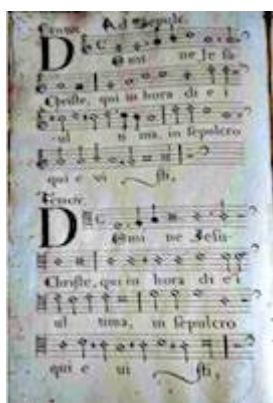 Ad Sepulc.
Domi ne Je su
Christe, qui in hora di e i
ul ti ma, in sepulcro
qui e vi sti,
Tenor.
Domi ne Jesu-
Christe, qui in hora di e i
ul tima, in sepulcro
qui e vi sti,